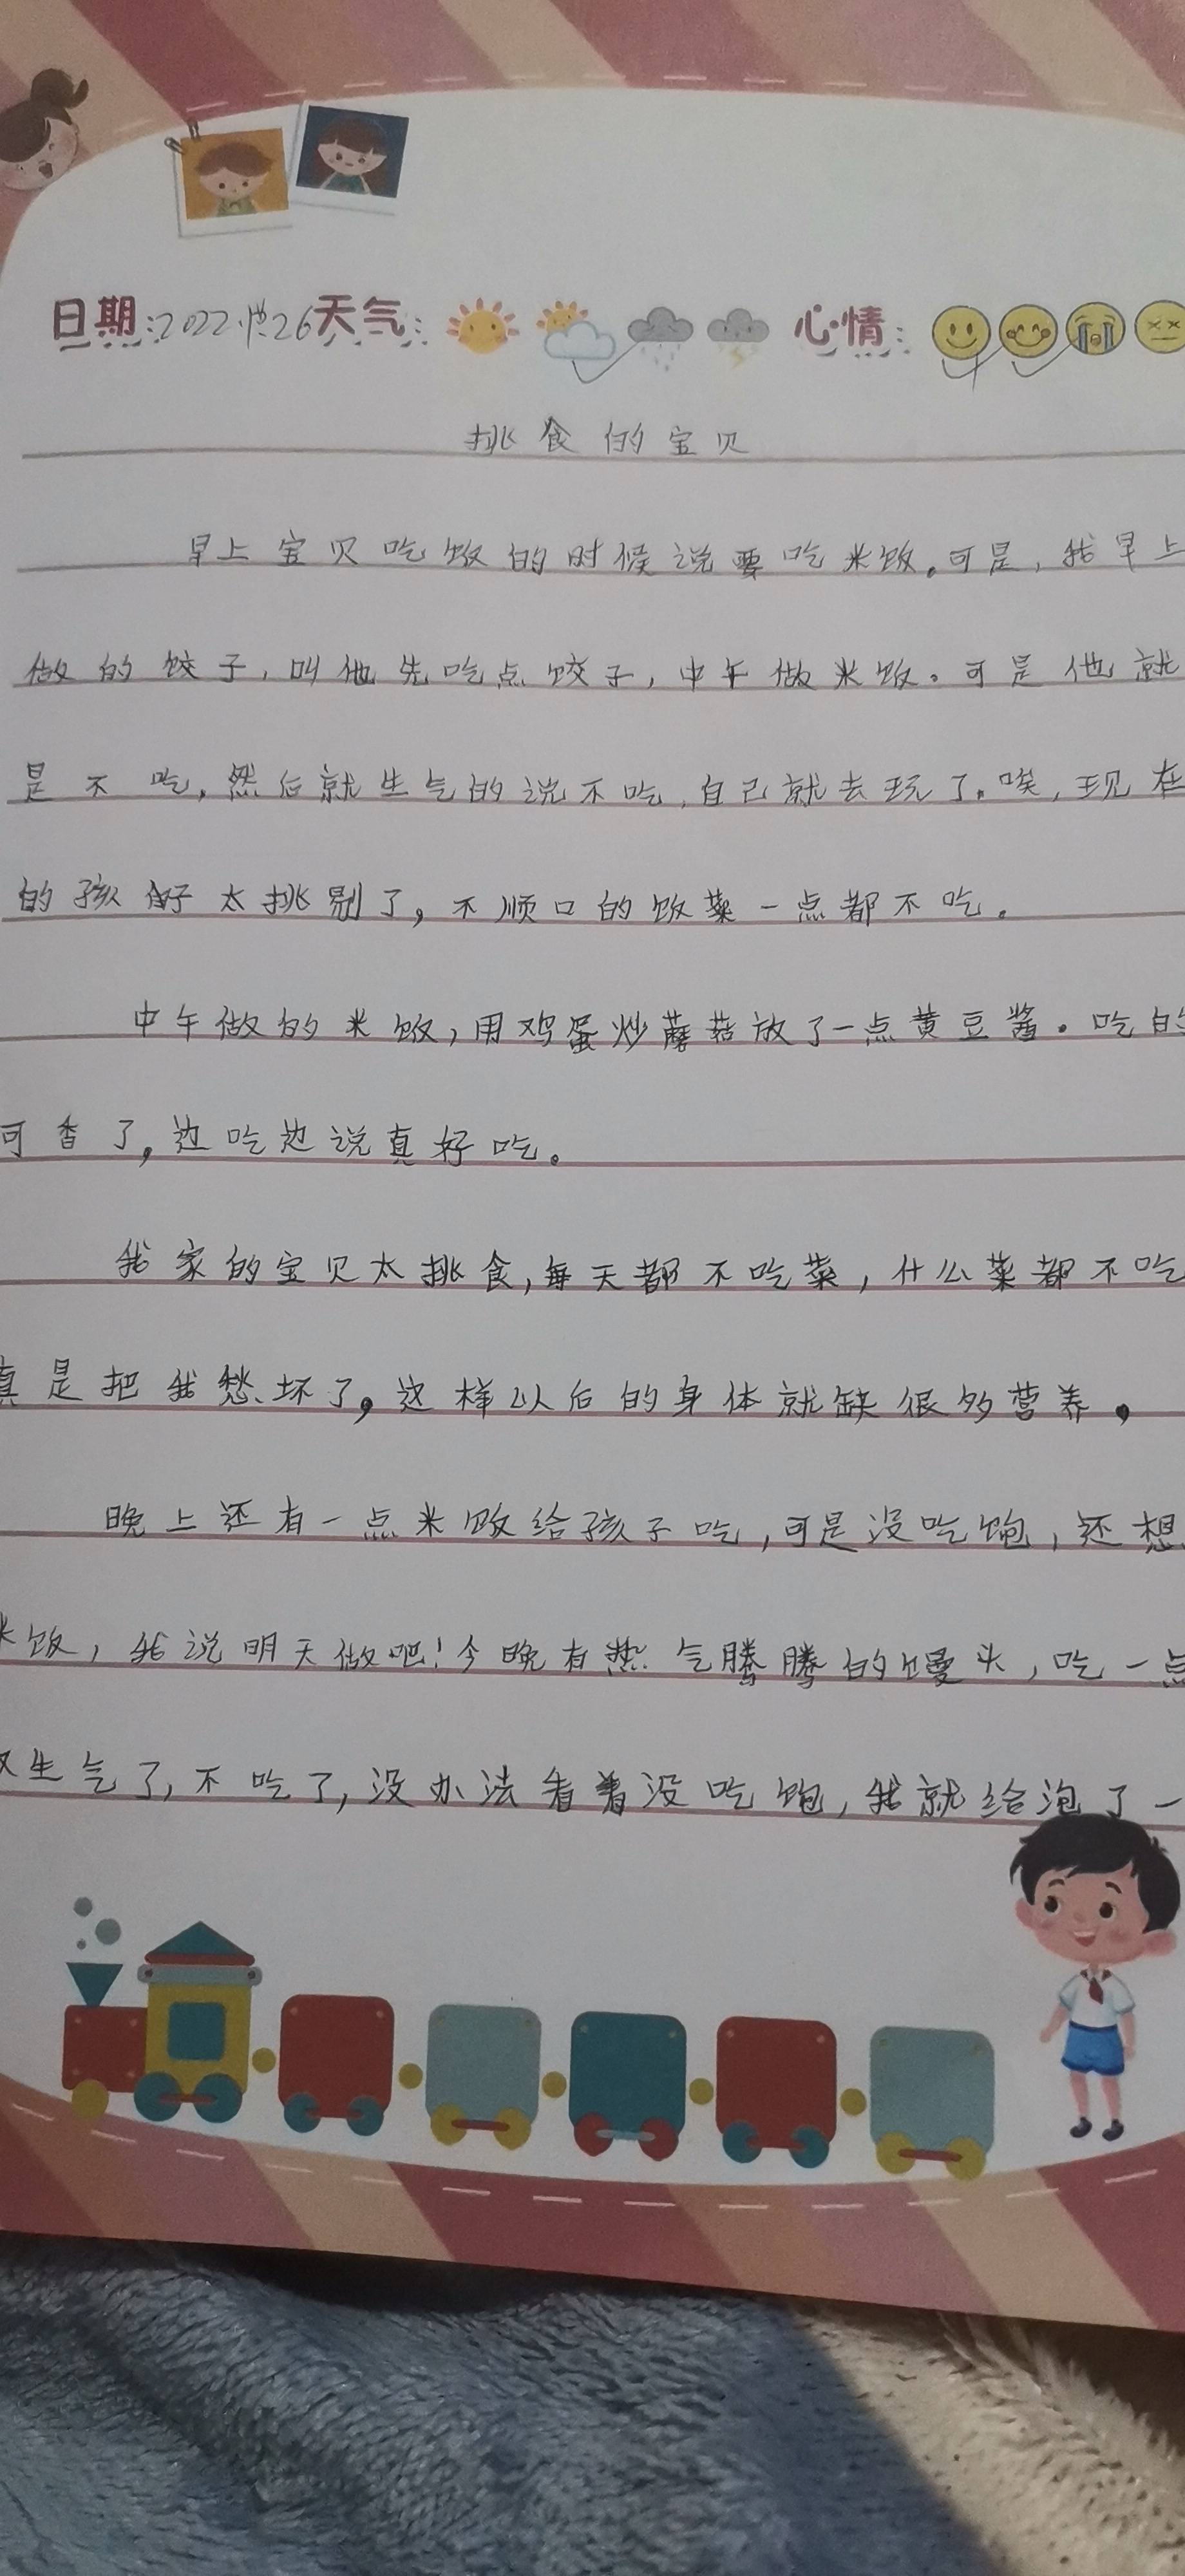 日期:2022 26天气: 心情:
挑食的宝贝
早上宝贝吃饭的时候说要吃米饭。可是,我早上
做的饺子,叫他先吃点饺子,中午做米饭。可是他就
是不吃,然后就生气的说不吃,自己就去玩了。唉,现在
的孩子太挑剔了,不顺口的饭菜一点都不吃。
中午做的米饭,用鸡蛋炒蘑菇放了一点黄豆酱。吃的
可香了,边吃边说真好吃。
我家的宝贝太挑食,每天都不吃菜,什么菜都不吃
真是把我愁坏了,这样以后的身体就缺很多营养。
晚上还有一点米饭给孩子吃,可是没吃饱,还想
米饭,我说明天做吧!今晚有热气腾腾的馒头,吃一点
又生气了,不吃了,没办法看着没吃饱,我就给泡了一